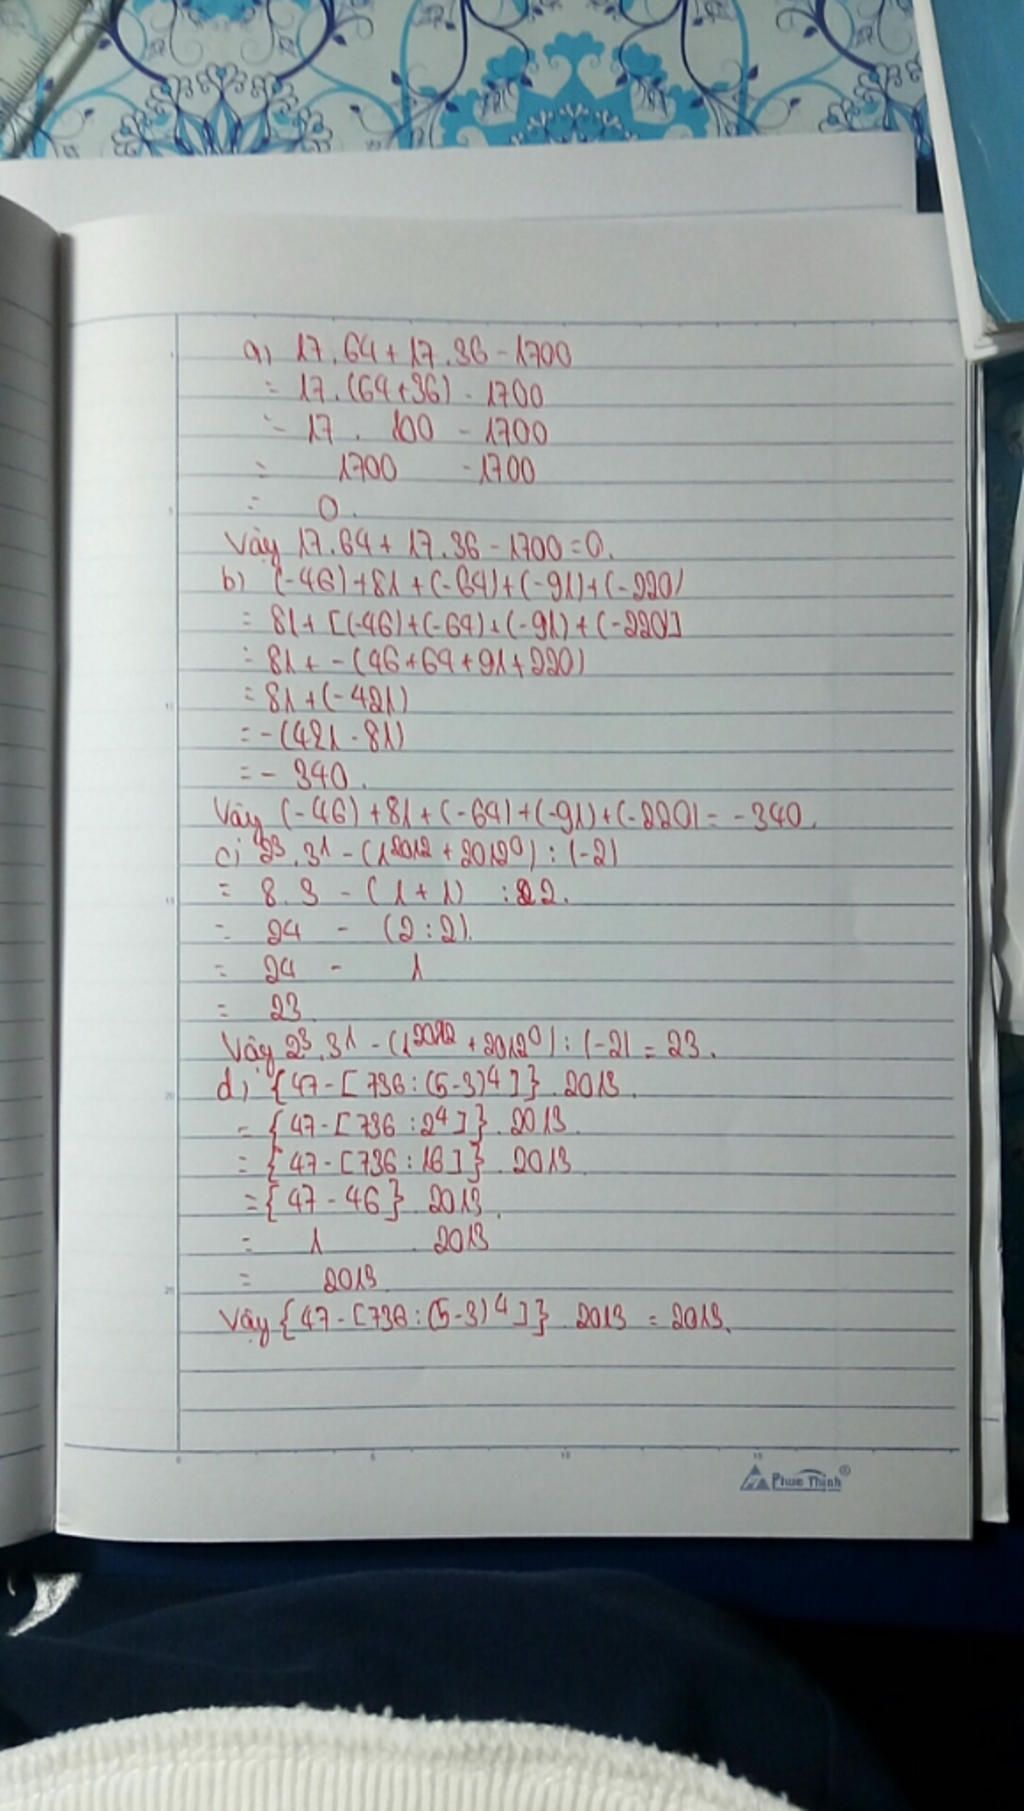 a) 17.64+17.36-1700
= 17.(64+36) - 1700
= 17. 100 - 1700
= 1700 -1700
= 0.
Vậy 17.64+17.36-1700=0.
b) (-46)+81+(-64)+(-91)+(-220)
= 81+[(-46)+(-64)+(-91)+(-220)]
= 81+-(46+64+91+220)
= 81+(-421)
= -(421-81)
= - 340.
Vậy (-46)+81+(-64)+(-91)+(-220)=-340.
c) 2³.3¹-(1²⁰¹²+2012⁰):|-2|
= 8.3 - (1+1) :2.
= 24 - (2:2).
= 24 - 1
= 23
Vậy 2³.3¹-(1²⁰¹²+2012⁰):|-2| = 23.
d) {47-[736:(5-3)⁴]}.2013.
= {47-[736:2⁴]}.2013
= {47-[736:16]}.2013
= {47-46}.2013.
= 1 .2013
= 2013
Vậy {47-[736:(5-3)⁴]}.2013 = 2013.
0 5 10 15
Phuc Thinh®